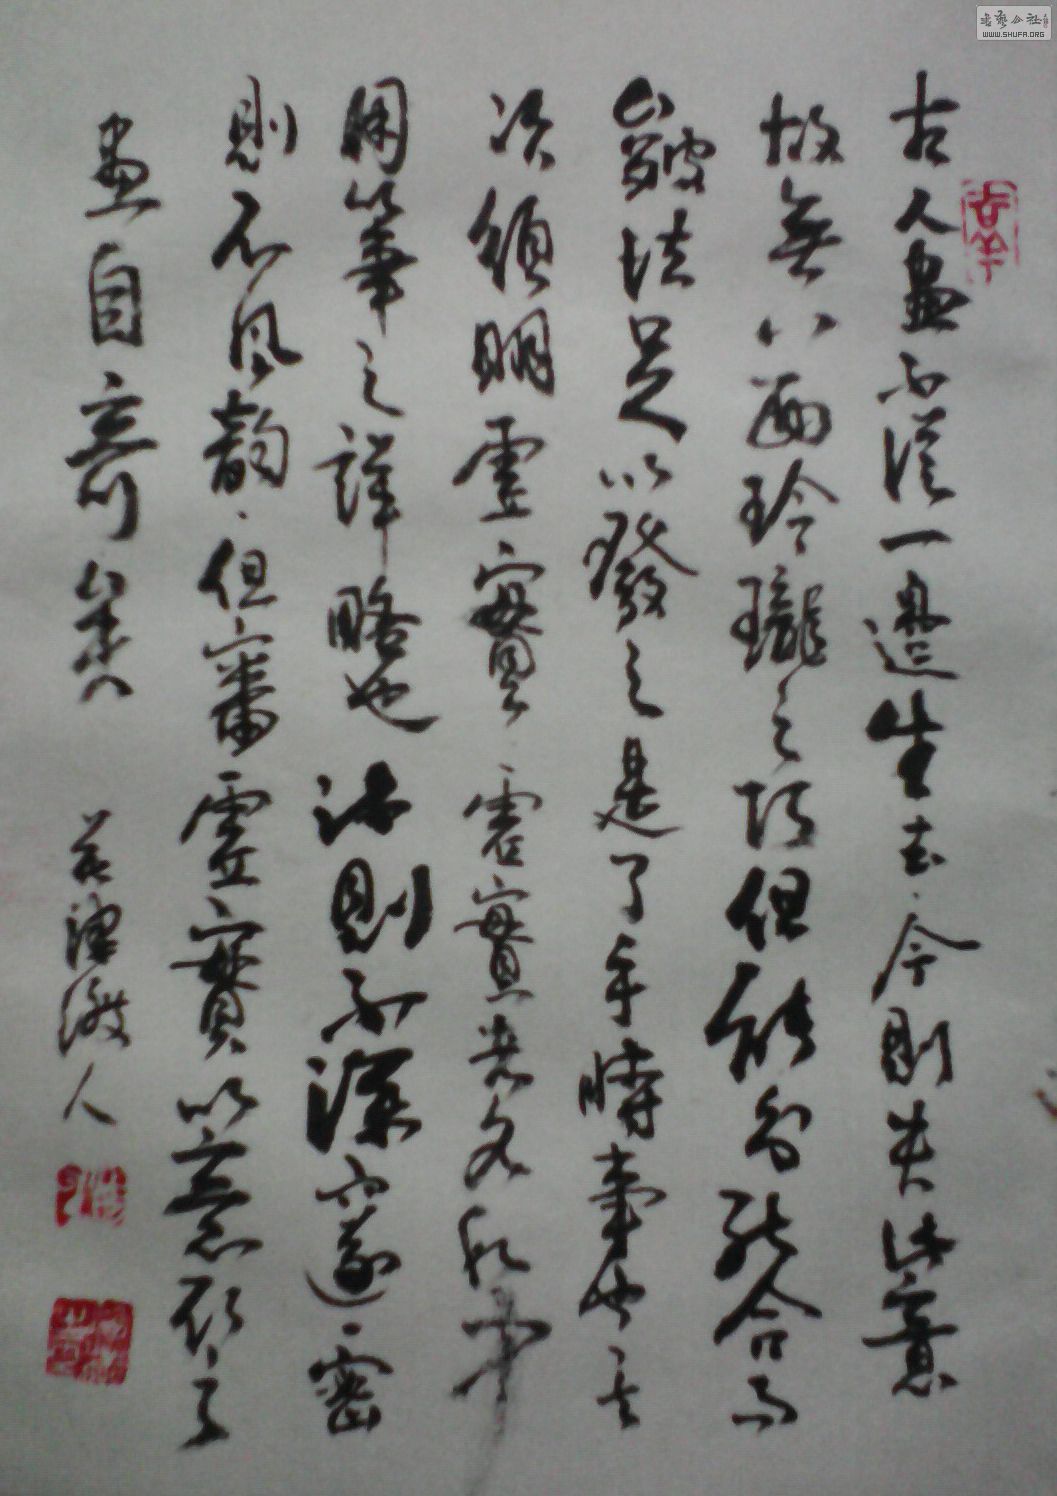 古人畫不從一邊生去今則失此意
故無八面玲瓏之巧但能分能合而
皴法足以發之是了手時事也其
次須明虛實虛實者各段中
用筆之詳略也詳則不深邃密
則不風韻但審虛實以意取之
畫自奇矣
人
WWW.SHUFA.ORG